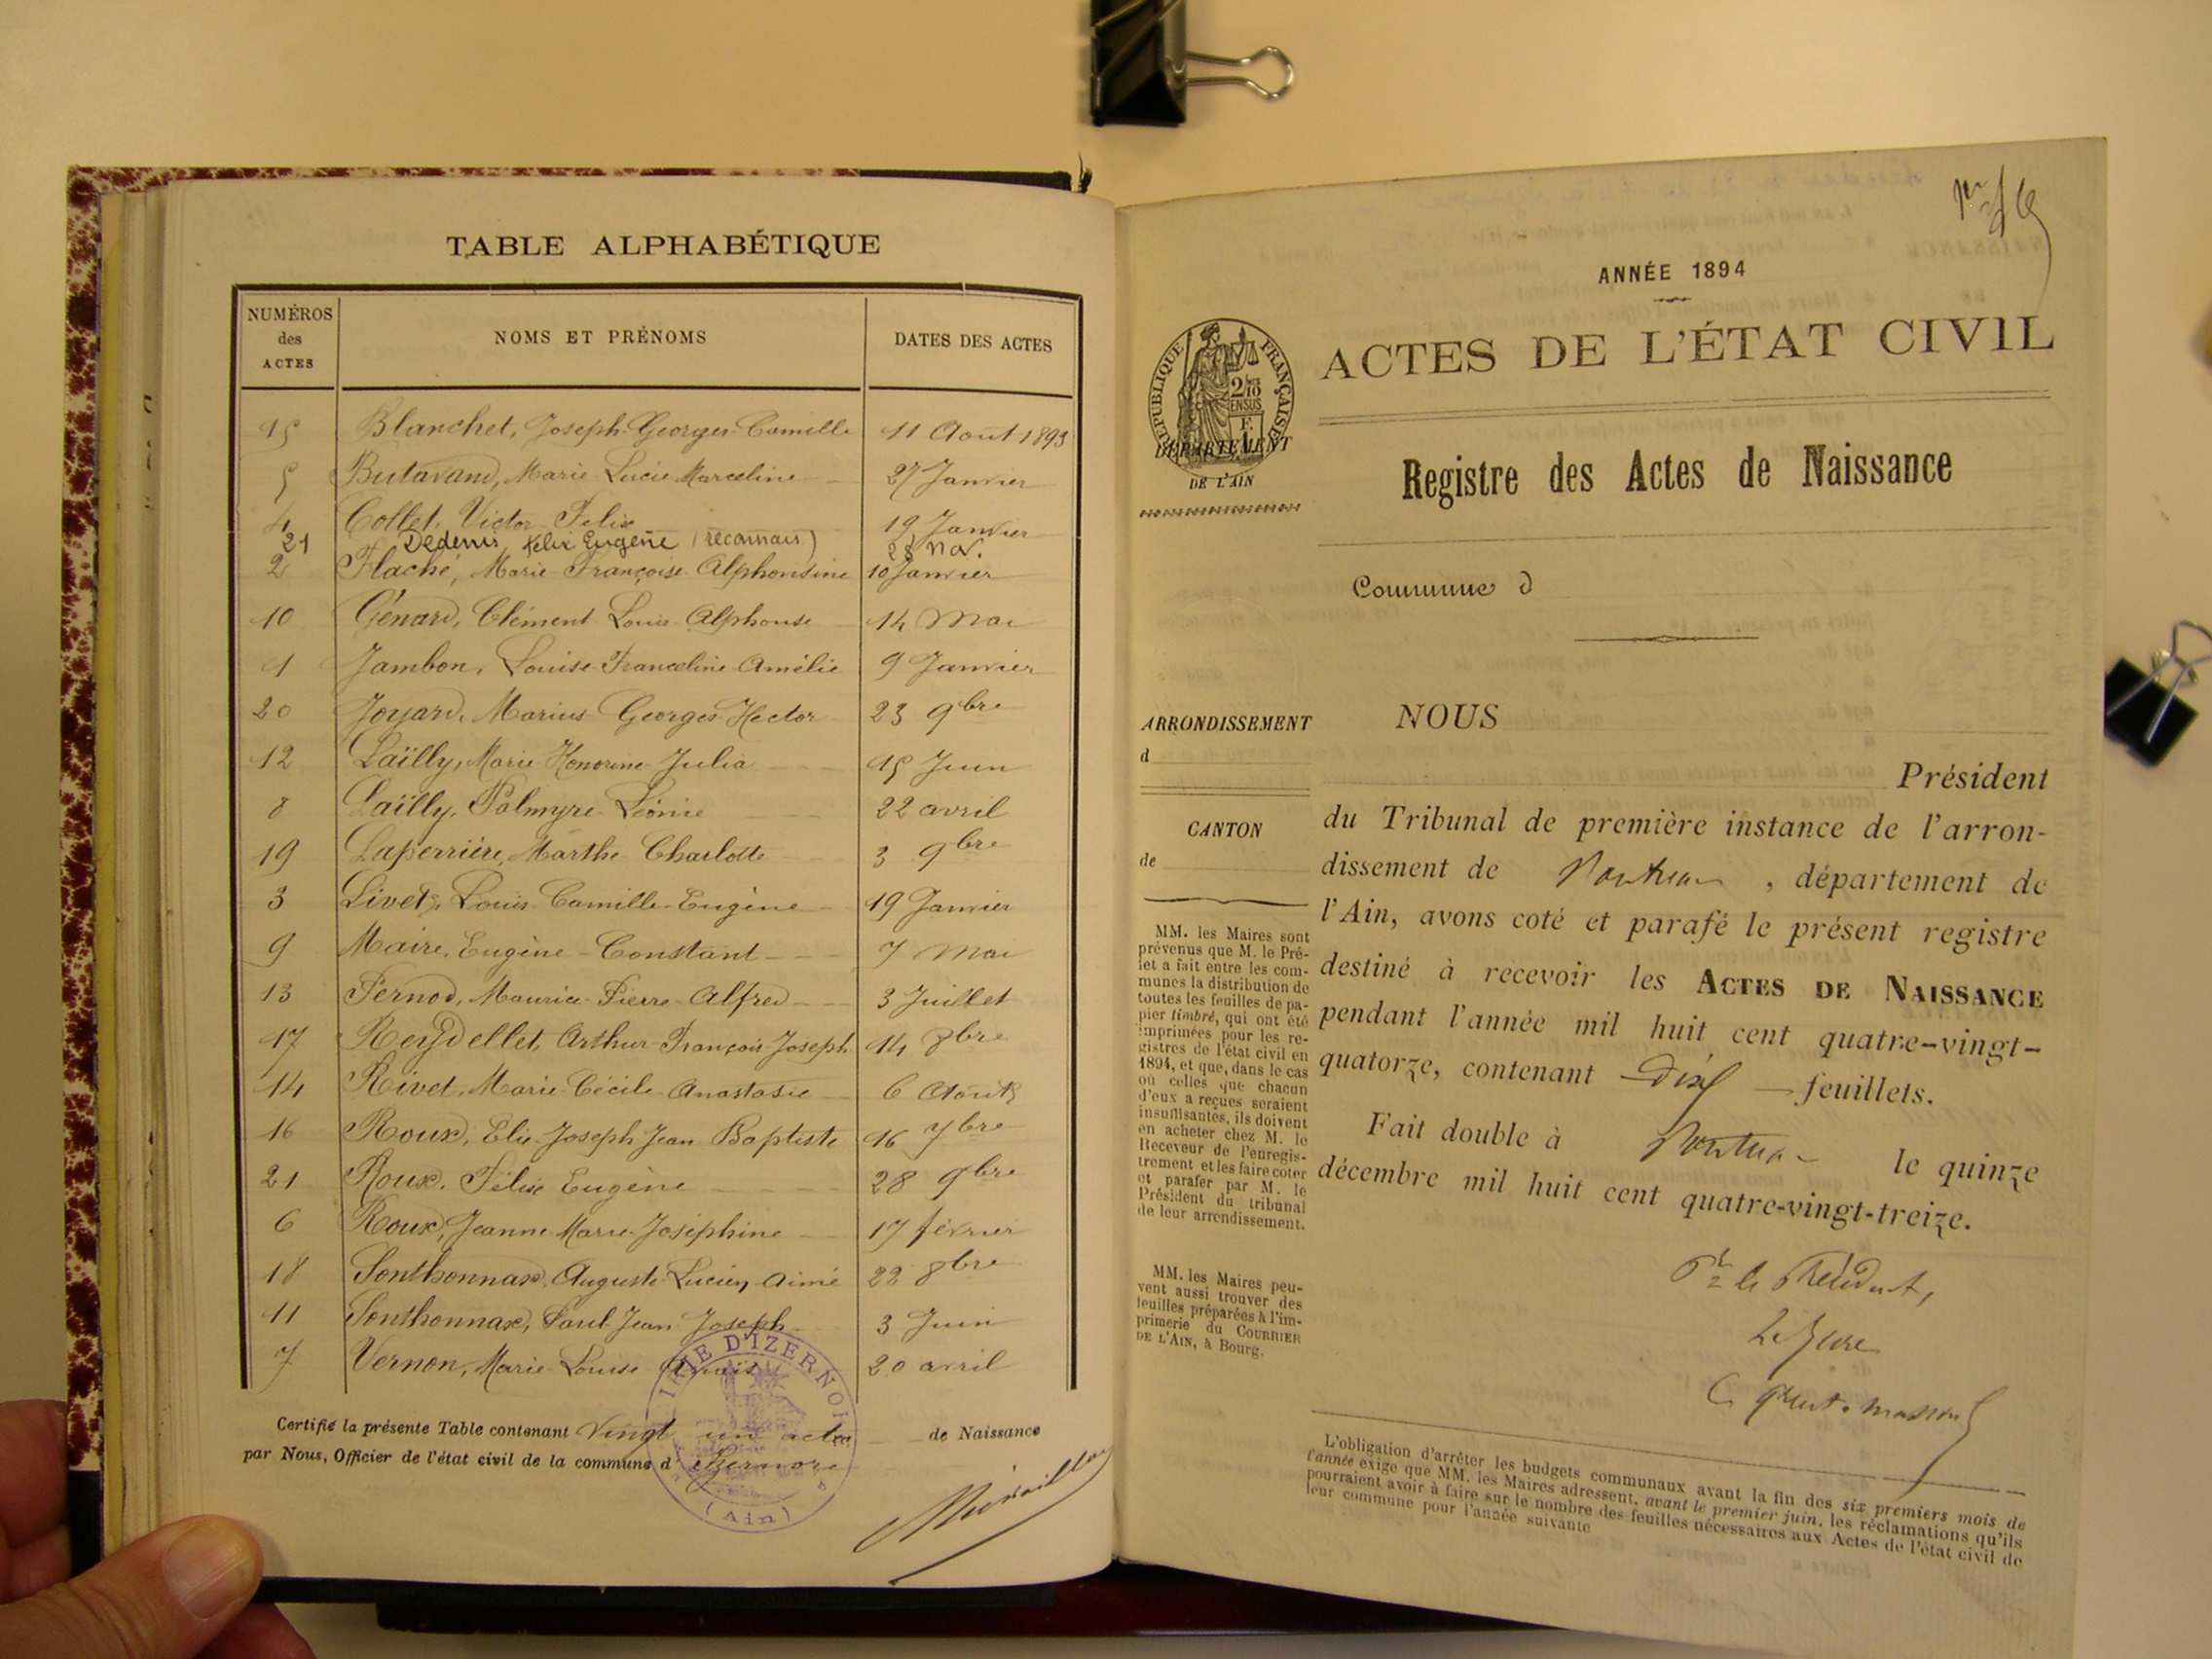 TABLE ALPHABÉTIQUE
NUMÉROS des ACTES NOMS ET PRÉNOMS DATES DES ACTES
15 Blanchet, Joseph Georges Camille 11 Août 1893
5 Butavand, Marie Lucie Marceline 27 Janvier
4 Collet, Victor Felix 19 Janvier
21 Dedenis, Felix Eugene (reconnais) 28 nov.
2 Flache, Marie Françoise Alphonsine 10 Janvier
10 Génard, Clément Louis Alphonse 14 Mai
1 Jambon, Louise Franceline Amélie 9 Janvier
20 Joyard, Marius Georges Hector 23 9bre
12 Laïlly, Marie Honorine Julia 15 Juin
8 Laïlly, Palmyre Léonie 22 avril
19 Laperrière, Marthe Charlotte 3 9bre
3 Livet, Louis Camille Eugène 19 Janvier
9 Maire, Eugène-Constant 7 Mai
13 Pernod, Maurice Pierre Alfred 3 Juillet
17 Reydellet, Arthur François Joseph 14 8bre
14 Rivet, Marie Cécile Anastasie 6 Août
16 Roux, Elie Joseph Jean Baptiste 16 7bre
21 Roux, Félix Eugène 28 9bre
6 Roux, Jeanne Marie Joséphine 17 février
18 Sonthonnax, Auguste Lucien Aimé 22 8bre
11 Sonthonnax, Paul Jean Joseph 3 Juin
7 Vernon, Marie Louise Anaïs 20 avril
Certifié la présente Table contenant Vingt un actes de Naissance
par Nous, Officier de l'état civil de la commune d'Izernore
MAIRIE D'IZERNORE
(Ain)
ANNÉE 1894
ACTES DE L'ÉTAT CIVIL
RÉPUBLIQUE FRANÇAISE
2/10 EN SUS
DÉPARTEMENT
DE L'AIN
Registre des Actes de Naissance
Commune d
ARRONDISSEMENT
d
CANTON
de
MM. les Maires sont
prévenus que M. le Pré-
fet a fait entre les com-
munes la distribution de
toutes les feuilles de pa-
pier timbré, qui ont été
imprimées pour les re-
gistres de l'état civil en
1894, et que, dans le cas
où celles que chacun
d'eux a reçues seraient
insuffisantes, ils doivent
en acheter chez M. le
Receveur de l'enregis-
trement et les faire coter
et parafer par M. le
Président du tribunal
de leur arrondissement.
MM. les Maires peu-
vent aussi trouver des
feuilles préparées à l'im-
primerie du COURRIER
DE L'AIN, à Bourg.
NOUS
Président
du Tribunal de première instance de l'arron-
dissement de Nantua, département de
l'Ain, avons coté et parafé le présent registre
destiné à recevoir les ACTES DE NAISSANCE
pendant l'année mil huit cent quatre-vingt-
quatorze, contenant dix feuillets.
Fait double à Nantua le quinze
décembre mil huit cent quatre-vingt-treize.
Pr le Président,
Le Juge
L'obligation d'arrêter les budgets communaux avant la fin des six premiers mois de
l'année exige que MM. les Maires adressent, avant le premier juin, les réclamations qu'ils
pourraient avoir à faire sur le nombre des feuilles nécessaires aux Actes de l'état civil de
leur commune pour l'année suivante